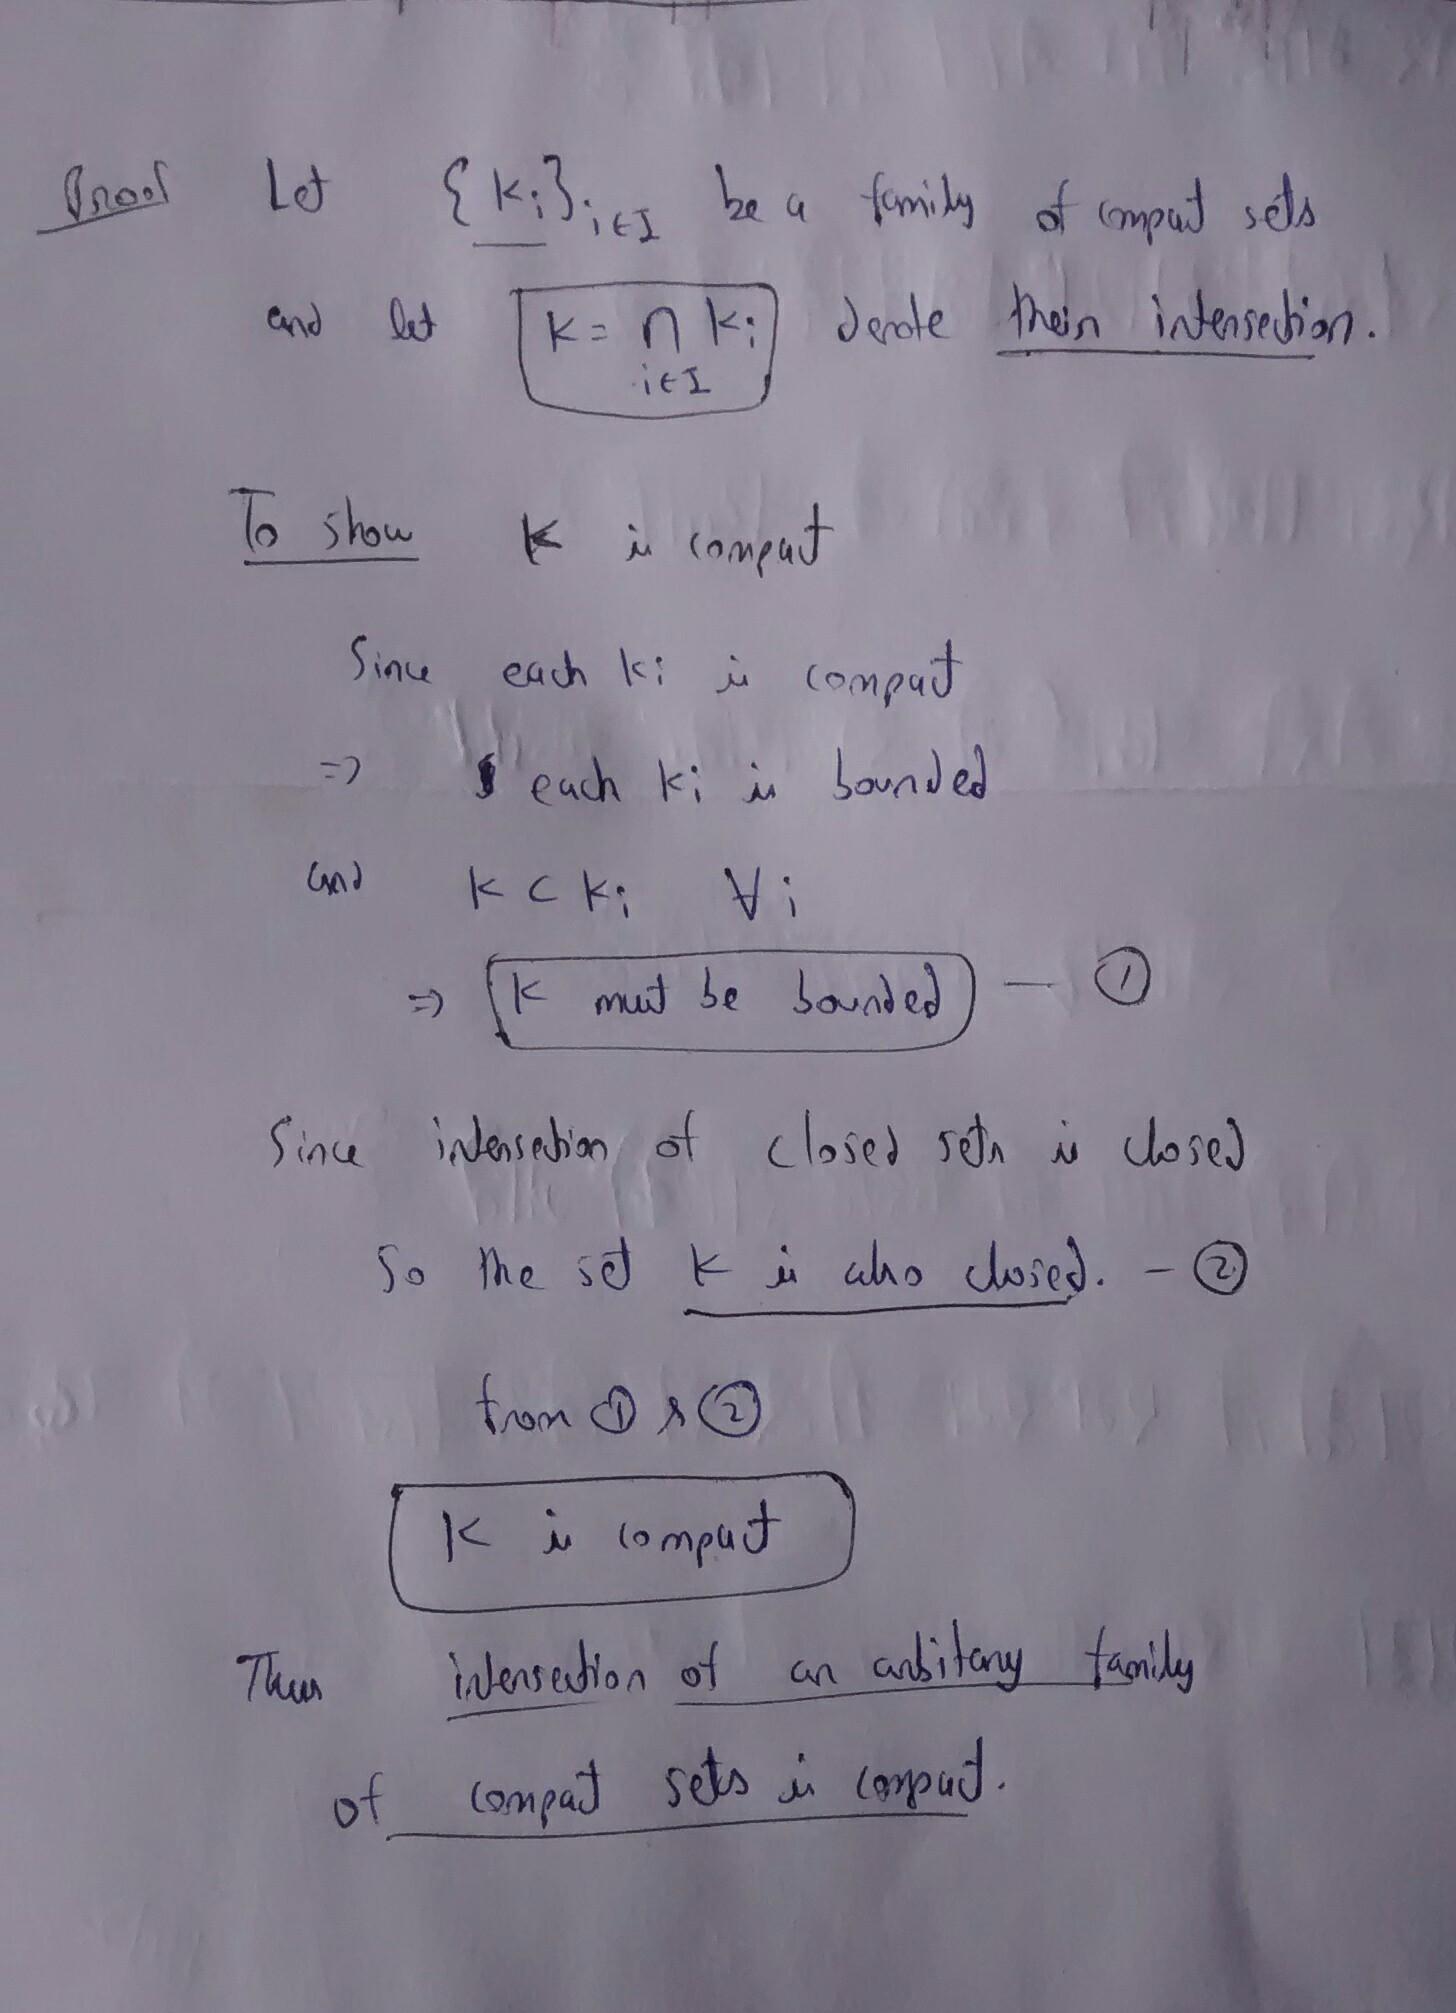 Proof Let {Ki}i∈I be a family of compact sets
and let K = ∩ Ki denote their intersection.
i∈I
To show K is compact
Since each Ki is compact
=> each Ki is bounded
and K ⊂ Ki ∀i
=> K must be bounded — ①
Since intersection of closed sets is closed
So the set K is also closed. — ②
from ① & ②
K is compact
Thus intersection of an arbitary family
of compact sets is compact.